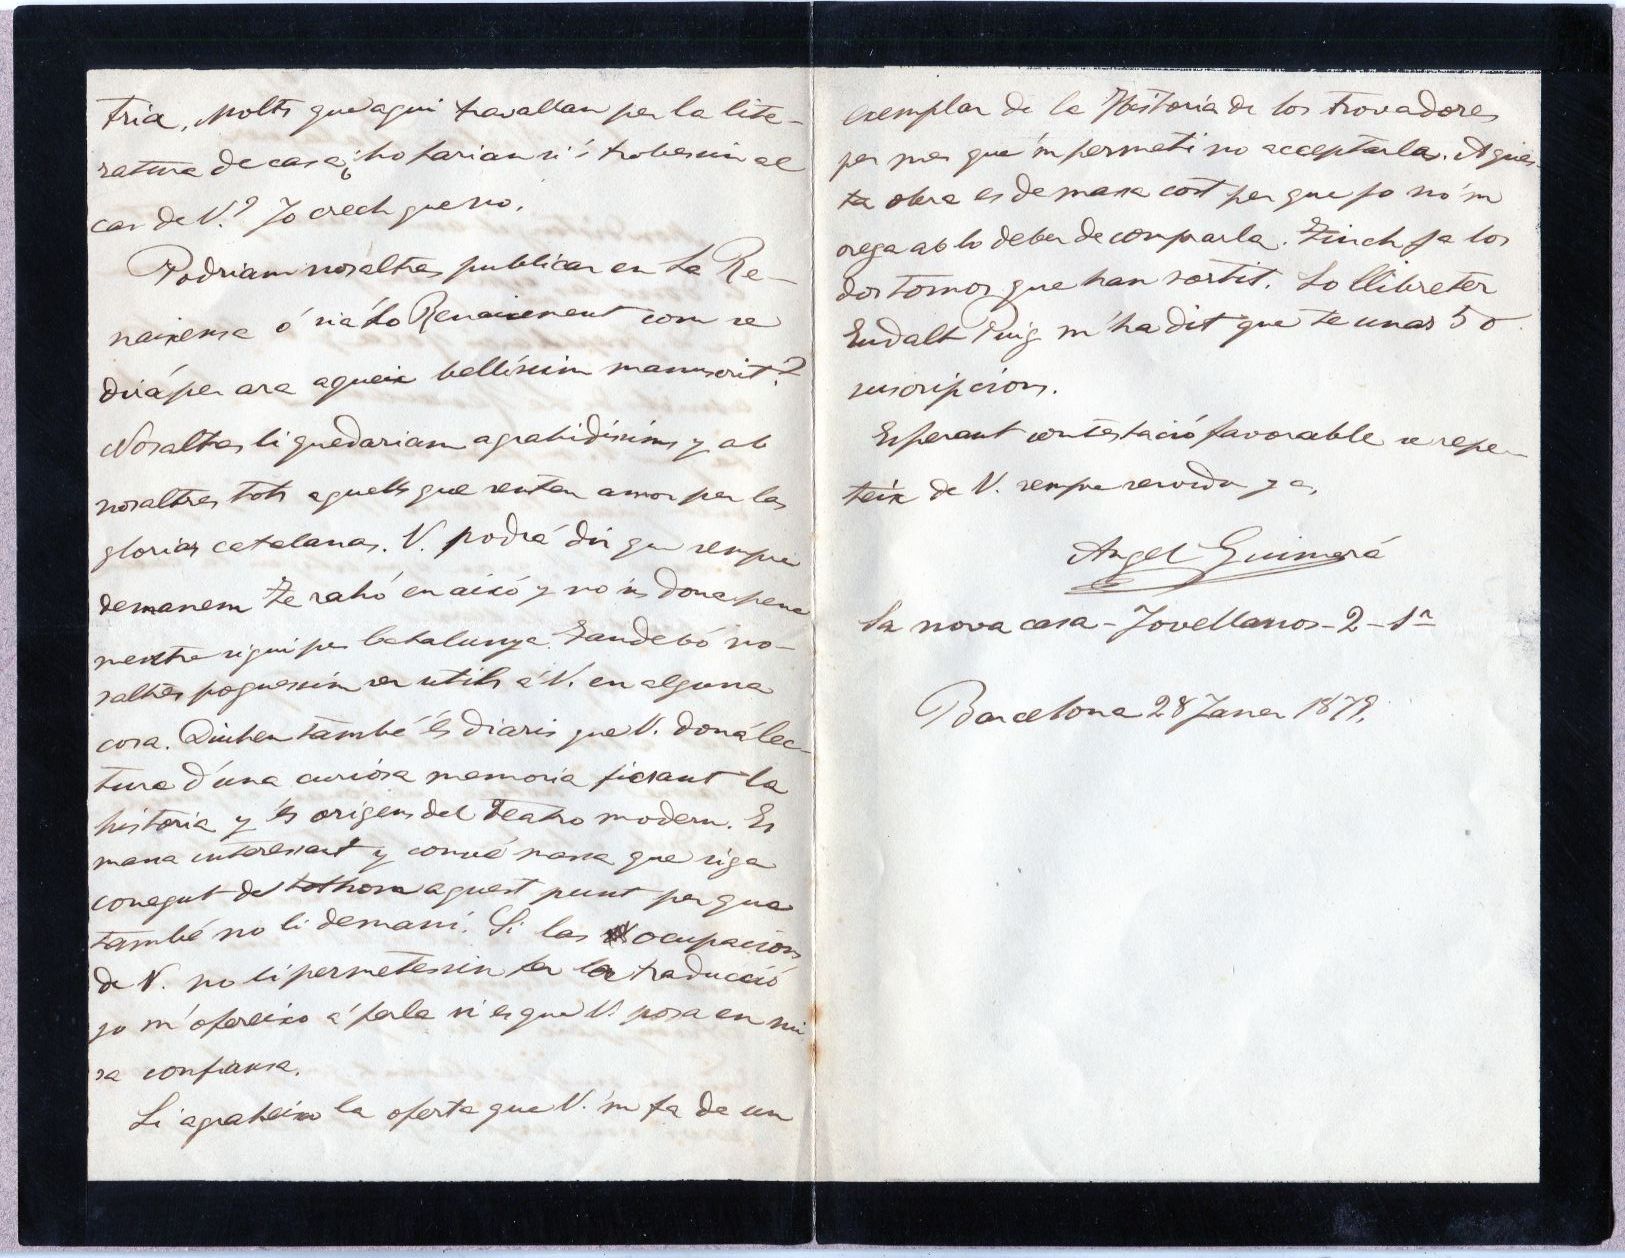 tria. Molts que aquí travallan per la lite-
ratura de casa ¿ho farian si 's trobessin al
cas de V.? Jo crech que no.
Podriam nosaltres publicar en La Re-
naixensa ó sia Lo Renaixement com se
dirá per ara aqueix bellíssim manuscrit?
Nosaltres li quedariam agrahidíssims y ab
nosaltres tots aquells que senten amor per las
glorias catalanas. V. podrá dir que sempre
demanem te rahó en aixó y no 'ns dona pena
mentre sigui per Catalunya. Tan debó no-
saltres poguessim ser utils á V. en alguna
cosa. Diuhen també 'ls diaris que V. doná lec-
tura d'una curiosa memoria fixant la
historia y 'ls origens del Teatro modern. Es
massa interessant y convé massa que siga
conegut de tothom aquest punt per que
també no li demani. Si las ocupacions
de V. no li permetessin fer la traducció
jo m' ofereixo á ferla si es que V. posa en mi
sa confiansa.
Li agraheixo la oferta que V. 'm fa de un
exemplar de la Historia de los trovadores
per mes que 'm permeti no acceptarla. Aques-
ta obra es de massa cost per que jo no 'm
crega ab lo deber de comprarla. Tinch ja los
dos tomos que han sortit. Lo llibreter
Eudalt Puig m' ha dit que te unas 50
suscripcions.
Esperant contestació favorable se repe-
teix de V. sempre servidor y a.
Angel Guimerá
Sa nova casa - Jovellanos - 2 - 1r
Barcelona 28 Janer 1879.